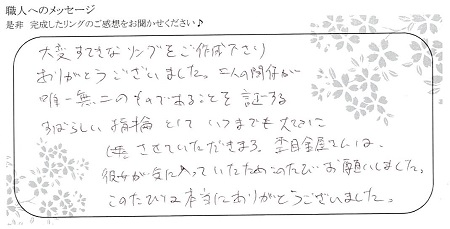 職人へのメッセージ
是非 完成したリングのご感想をお聞かせください♪
大変すてきなリングをご作成下さり
ありがとうございました。二人の関係が
唯一無二のものであることを証する
すばらしい指輪として いつまでも大切に
させていただきます。杢目金屋さんは、
彼女が気に入っていたためこのたびお願いしました。
このたびは本当にありがとうございました。